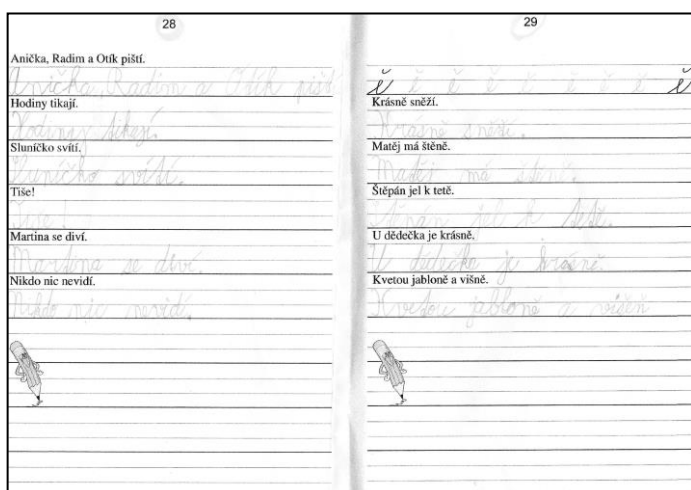 28
Anička, Radim a Otík piští.
Anička, Radim a Otík piští
Hodiny tikají.
Hodiny tikají.
Sluníčko svítí.
Sluníčko svítí.
Tiše!
Martina se diví.
Martina se diví.
Nikdo nic nevidí.
Nikdo nic nevidí.
29
ě ě ě ě ě ě ě ě ě
Krásně sněží.
Krásně sněží.
Matěj má štěně.
Matěj má štěně.
Štěpán jel k tetě.
Štěpán jel k tetě.
U dědečka je krásně.
U dědečka je krásně.
Kvetou jabloně a višně.
Kvetou jabloně a